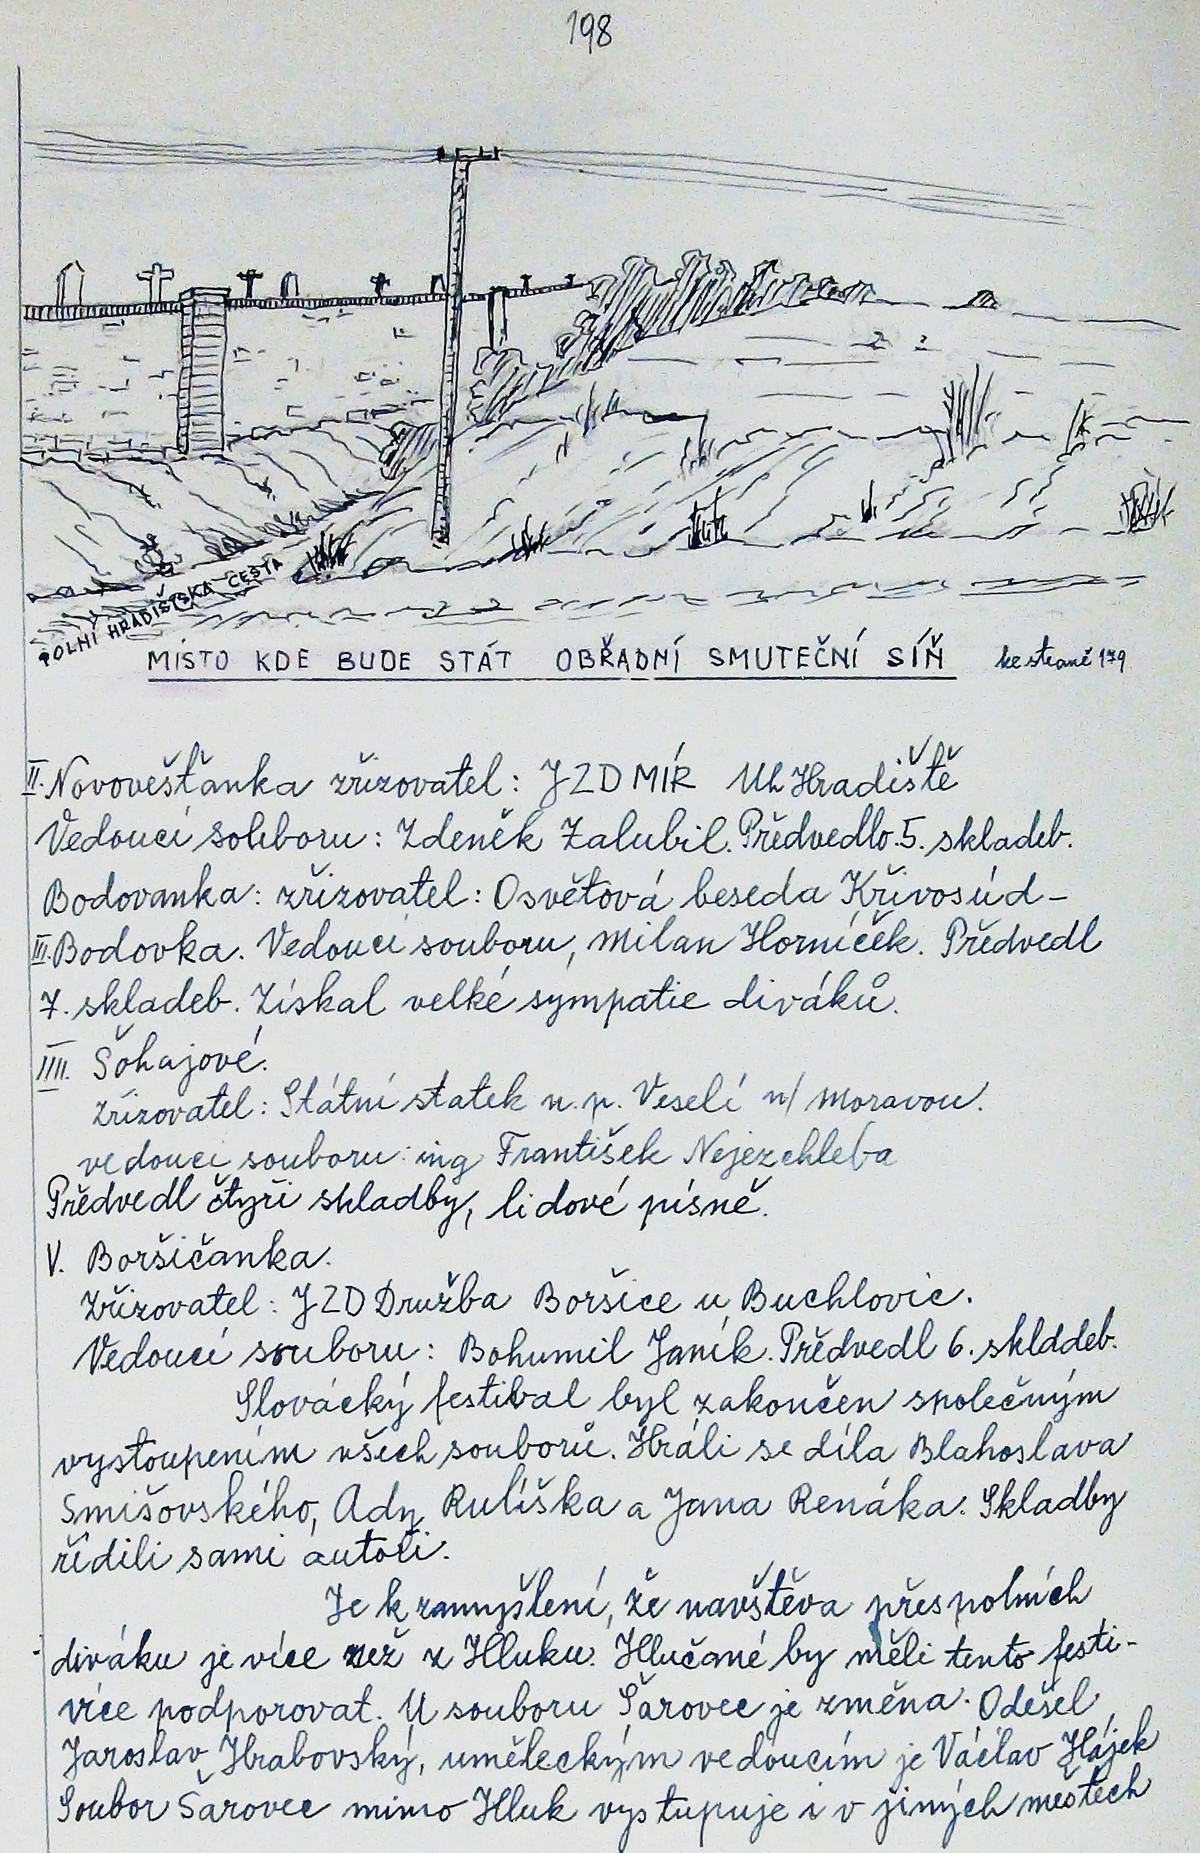 198
POLNÍ HRADIŠŤSKÁ CESTA
MÍSTO KDE BUDE STÁT OBŘADNÍ SMUTEČNÍ SÍŇ ke straně 179
II. Novovešťanka zřizovatel: JZD MÍR Uh Hradiště
Vedoucí souboru: Zdeněk Zalubil. Předvedlo.5. skladeb.
Bodovanka: zřizovatel: Osvětová beseda Křivosúd-
III. Bodovka. Vedoucí souboru, Milan Horníček. Předvedl
7. skladeb. Získal velké sympatie diváků.
IIII. Šohajové.
zřizovatel: Státní statek n.p. Veselí n/ Moravou.
vedoucí souboru: ing František Nejezchleba
Předvedl čtyři skladby, lidové písně.
V. Boršičanka.
Zřizovatel: JZD Družba Boršice u Buchlovic.
Vedoucí souboru: Bohumil Janík. Předvedl 6. sklddeb.
Slovácký festibal byl zakončen společným
vystoupením všech souborů. Hráli se díla Blahoslava
Smišovského, Ady Rulíška a Jana Renáka. Skladby
řídili sami autoři.
Je k zamyšlení, že navštěva přespolních
diváku je více než z Hluku. Hlučané by měli tento festi-
více podporovat. U souboru Šarovec je změna. Odešel
Jaroslav Hrabovský, uměleckým vedoucím je Václav Hájek
Soubor Šarovec mimo Hluk vystupuje i v jiných městech